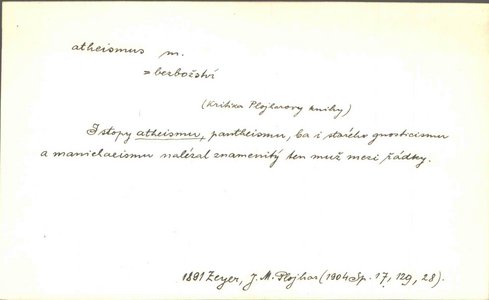 atheismus m.
= bezbožství
(Kritika Plojharovy knihy)
I stopy atheismu, pantheismu, ba i starého gnosticismu
a manichaeismu nalézal znamenitý ten muž mezi řádky.
1891 Zeyer, J. M. Plojhar (1904 Sp. 17, 129, 28).